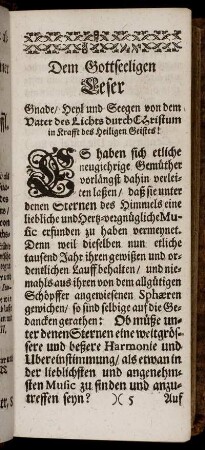 Dem Gottseeligen
Leser
Gnade/ Heyl und Seegen von dem
Vater des Lichts durch CHristum
in Krafft des Heiligen Geistes!
ES haben sich etliche
neugierige Gemüther
vorlängst dahin verlei-
ten laßen/ daß sie unter
denen Sternen des Himmels eine
liebliche und Hertz-vergnügliche Mu-
sic erfunden zu haben vermeynet.
Denn weil dieselben nun etliche
tausend Jahr ihren gewißen und or-
dentlichen Lauff behalten/ und nie-
mahls aus ihren von dem allgütigen
Schöpffer angewiesenen Sphæren
gewichen/ so sind selbige auf die Ge-
dancken gerathen: Ob müße un-
ter denen Sternen eine weit größ-
sere und beßere Harmonie und
Ubereinstimmung/ als etwan in
der lieblichsten und angenehm-
sten Music zu finden und anzu-
treffen seyn?
)( 5
Auf